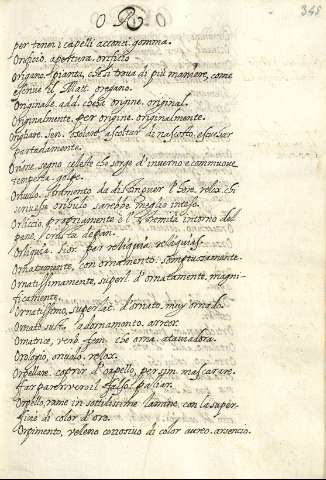 O R
348
per tener i capelli acconci. gomma.
Orificio, apertura. orificio
Origano, pianta, che si trova di più maniere, come
scrive il Matt. oregano.
Originale. add. che ha origine. original.
Originalmente. per origine. originalmente.
Origliare. sen. ascoltar di nascosto. escuchar
segno celeste che sorge d'inverno e commuove
tempesta.
Oriuolo. strumento da distinguer l'hore. relox. chi
sarebbe meglio inteso.
Orliccio, propriamente è l'estremità intorno del
pane.
Orliquia. per reliquia. reliquias.
Ornatamente, con ornamento. sumptuosamente.
Ornatissimamente, superl. d'ornatamente. magni-
ficamente.
Ornatissimo, superlat. d'ornato. muy ornado.
Ornato sust. adornamento. arreo.
Ornatrice, verb. fem. che orna. ataviadora.
Orologio, oriuolo. relox.
Orpellare. coprir d'orpello, per sim. mascarare.
Orpello, rame in sottilissime lamine, con la super-
ficie di color d'oro.
Orpimento, veleno corrosivo di color aureo. arsenico.